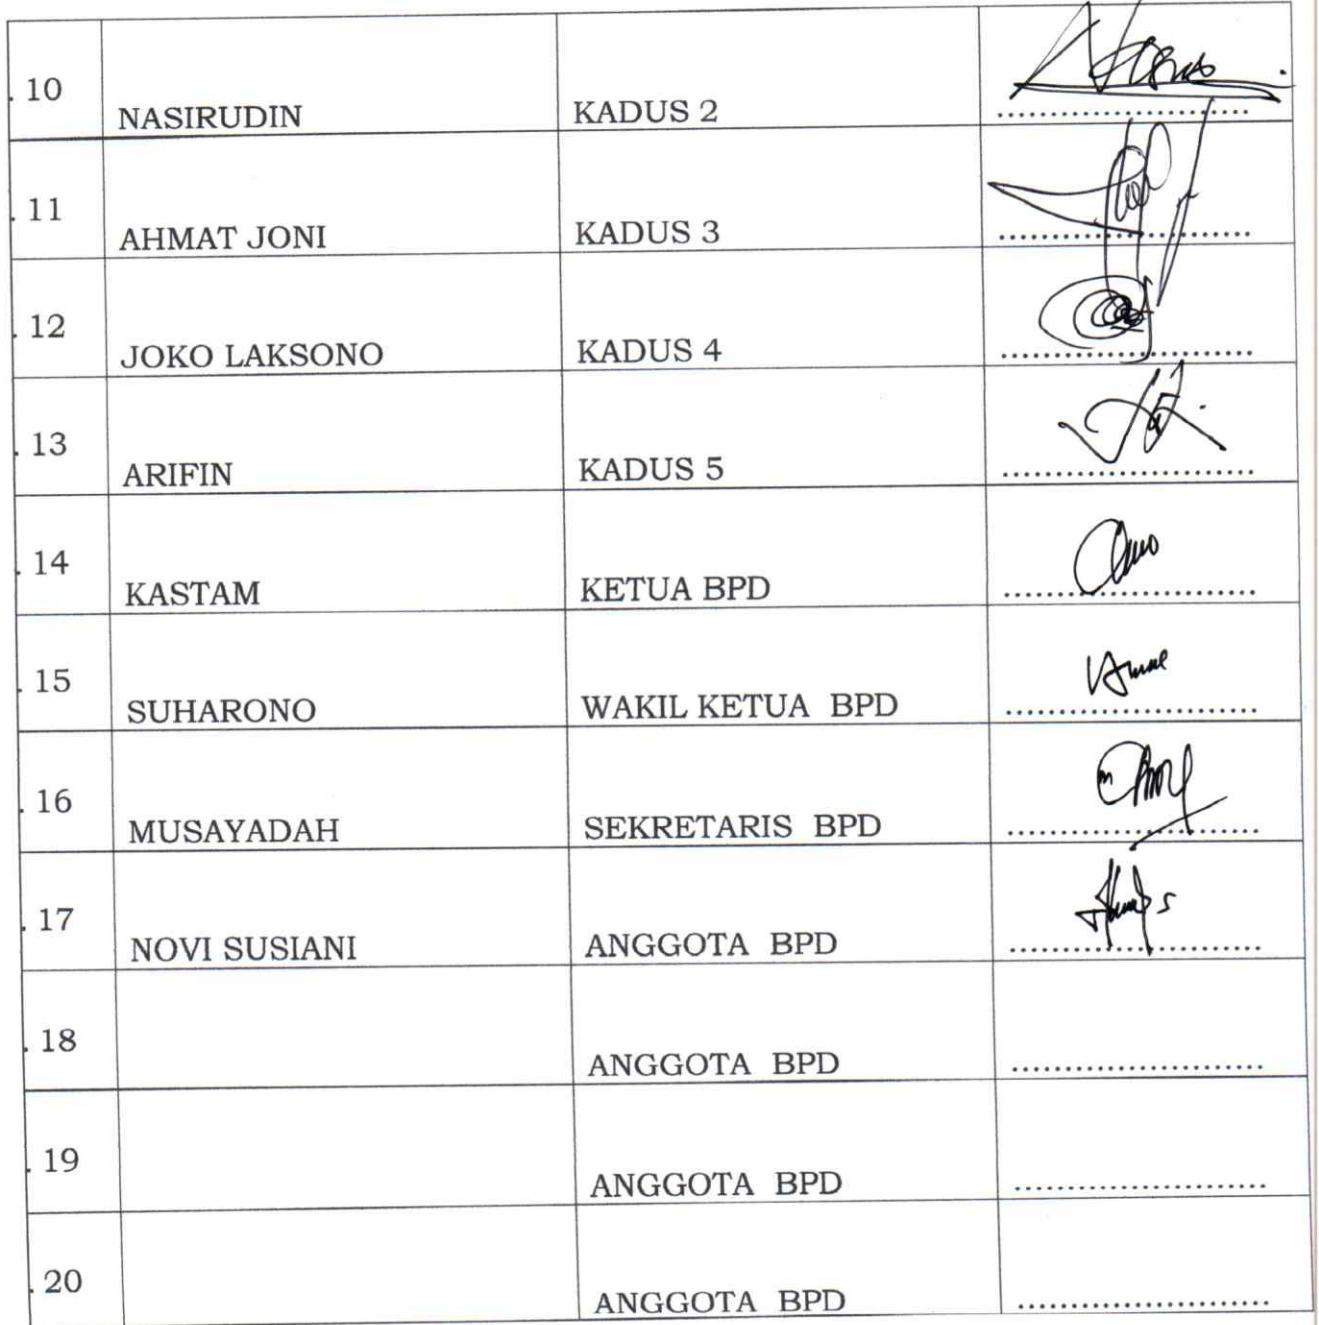 . 10 NASIRUDIN KADUS 2 ........................
. 11 AHMAT JONI KADUS 3 ........................
. 12 JOKO LAKSONO KADUS 4 ........................
. 13 ARIFIN KADUS 5 ........................
. 14 KASTAM KETUA BPD ........................
. 15 SUHARONO WAKIL KETUA BPD ........................
. 16 MUSAYADAH SEKRETARIS BPD ........................
. 17 NOVI SUSIANI ANGGOTA BPD ........................
. 18 ANGGOTA BPD ........................
. 19 ANGGOTA BPD ........................
. 20 ANGGOTA BPD ........................